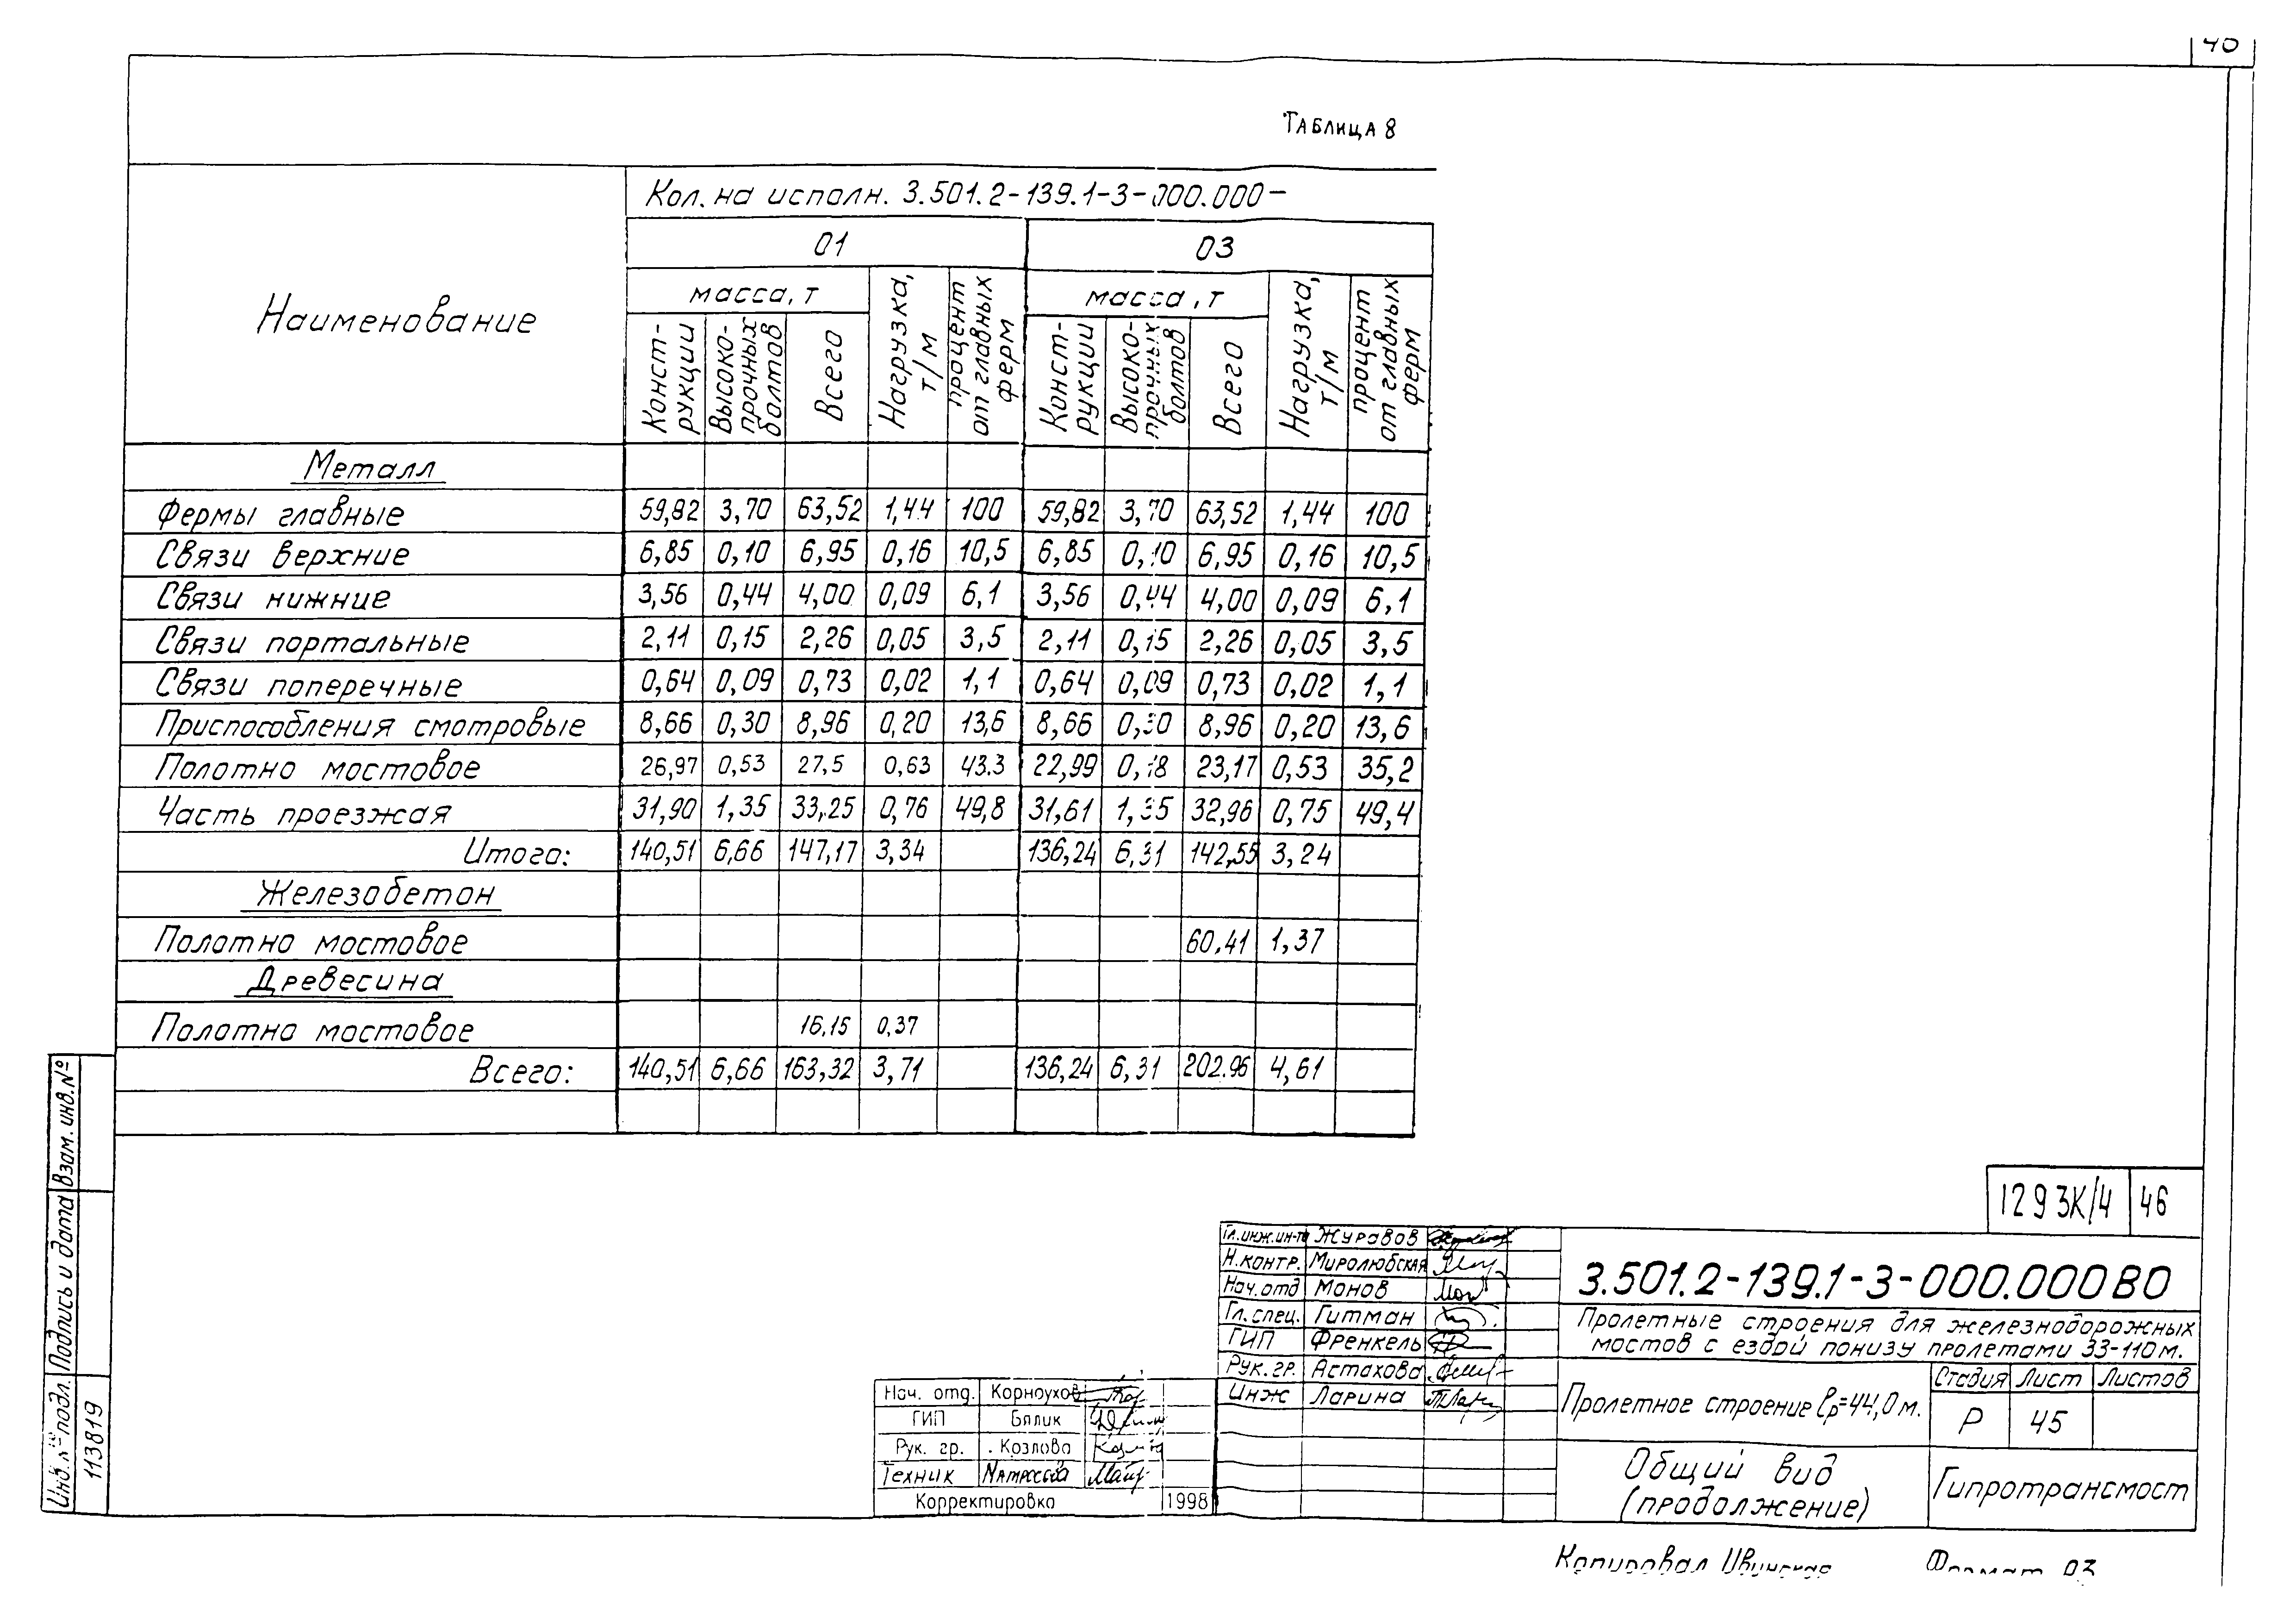 Таблица 8
Наименование
Кол. на исполн. 3.501.2-139.1-3-000.000-
01
03
масса, т
Нагрузка, т/м
процент от главных ферм
масса, т
Нагрузка, т/м
процент от главных ферм
Конст-рукции
Высоко-прочных болтов
Всего
Конст-рукции
Высоко-прочных болтов
Всего
Металл
Фермы главные 59,82 3,70 63,52 1,44 100 59,82 3,70 63,52 1,44 100
Связи верхние 6,85 0,10 6,95 0,16 10,5 6,85 0,10 6,95 0,16 10,5
Связи нижние 3,56 0,44 4,00 0,09 6,1 3,56 0,44 4,00 0,09 6,1
Связи портальные 2,11 0,15 2,26 0,05 3,5 2,11 0,15 2,26 0,05 3,5
Связи поперечные 0,64 0,09 0,73 0,02 1,1 0,64 0,09 0,73 0,02 1,1
Приспособления смотровые 8,66 0,30 8,96 0,20 13,6 8,66 0,30 8,96 0,20 13,6
Полотно мостовое 26,97 0,53 27,5 0,63 43.3 22,99 0,18 23,17 0,53 35,2
Часть проезжая 31,90 1,35 33,25 0,76 49,8 31,61 1,35 32,96 0,75 49,4
Итого: 140,51 6,66 147,17 3,34 136,24 6,31 142,55 3,24
Железобетон
Полотно мостовое 60.41 1,37
Древесина
Полотно мостовое 16,15 0,37
Всего: 140,51 6,66 163,32 3,71 136,24 6,31 202.96 4,61
Взам. инв. №
Подпись и дата
Инв. № подл.
113819
1293К/4 46
Гл. инж. ин-та Журавов
Н. контр. Миролюбская
Нач. отд Монов
Гл. спец. Гитман
ГИП Френкель
Рук. гр. Астахова
Инж Ларина
3.501.2-139.1-3-000.000ВО
Пролетные строения для железнодорожных
мостов с ездой понизу пролетами 33-110м.
Пролетное строение lр=44,0м.
Стадия Лист Листов
Р 45
Общий вид
(продолжение)
Гипротрансмост
Нач. отд. Корноухов
ГИП Бялик
Рук. гр. Козлова
Техник Матросова
Корректировка 1998
Копировал
Формат